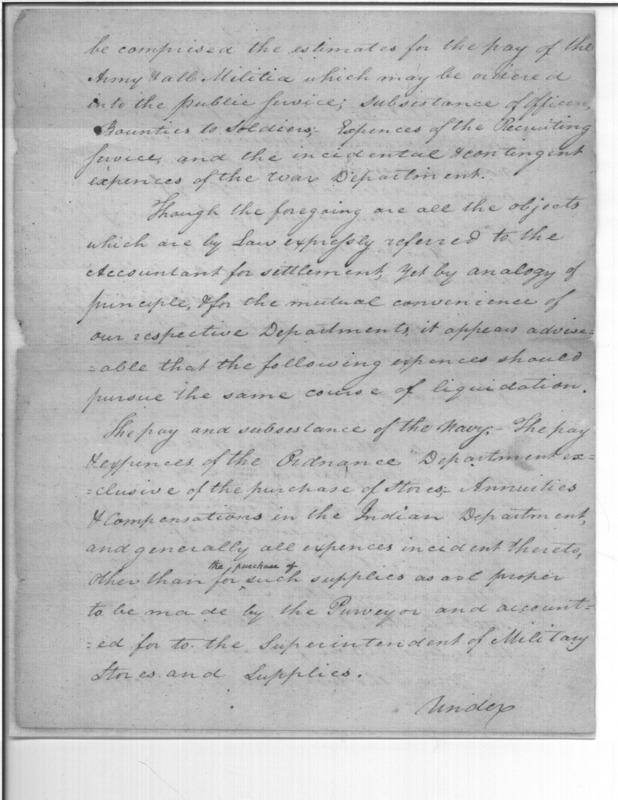 be comprised the estimates for the pay of the
Army & all Militia which may be ordered
into the public service; subsistance of officers,
Bounties to Soldiers; Expences of the Recruiting
Service, and the incidental & contingent
expences of the War Department.
Though the foregoing are all the objects
which are by Law expressly referred to the
Accountant for settlement, yet by analogy of
principle, & for the mutual convenience of
our respective Departments, it appears advise=
=able that the following expences should
pursue the same course of liquidation.
The pay and subsistance of the Navy;- The pay
& expences of the Ordnance Department ex=
=clusive of the purchase of Stores;- Annuities
& Compensations in the Indian Department,
and generally all expences incident thereto,
the purchase of
other than for such supplies as are proper
to be made by the Purveyor and account=
=ed for to the Superintendent of Military
Stores and Supplies.
Under